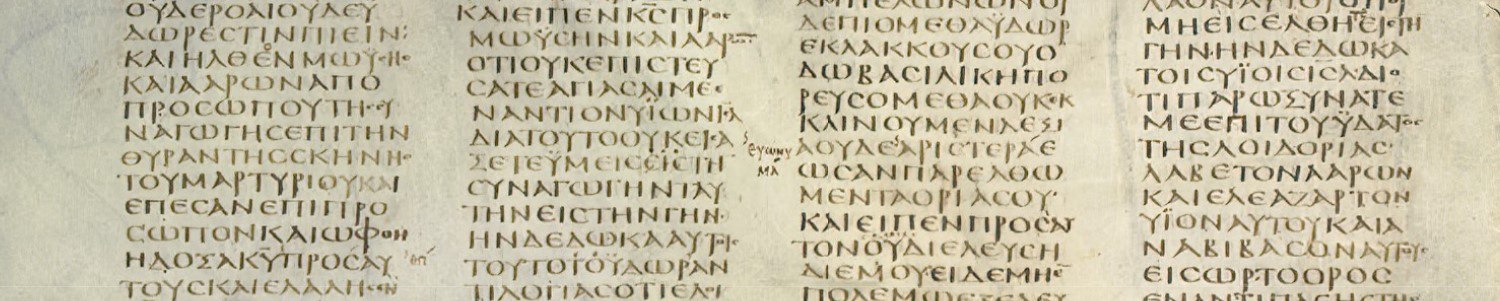 ΟΥΔΕΡΟΑΙΟΥΔΕΥ
ΔΩΡΕСΤΙΝΠΙΕΙΝ:
ΚΑΙΗΛΘΕΝΜΩΥ
ΚΑΙΑΑΡΩΝΑΠΟ
ΠΡΟСΩΠΟΥΤΗС
ΝΑΓΩΓΗСΕΠΙΤΗΝ
ΘΥΡΑΝΤΗССΚΗΝΗ
ΤΟΥΜΑΡΤΥΡΙΟΥΚΑΙ
ΕΠΕСΑΝΕΠΙΠΡΟ
СΩΠΟΝΚΑΙΩΦΘΗ
ΗΔΟΞΑΚΥΠΡΟСΑΥ
ΤΟΥСΚΑΙΕΛΑΛΗ
ΚΑΙΕΙΠΕΝΚСΠΡΟС
ΜΩΫСΗΝΚΑΙΑΑΡ
ΟΤΙΟΥΚΕΠΙСΤΕΥ
СΑΤΕΑΓΙΑСΑΙΜΕ
ΝΑΝΤΙΟΝΥΪΩΝΙΛ
ΔΙΑΤΟΥΤΟΟΥΚΕΙСΑ
ΞΕΤΕΫΜΕΙСΕΙСΤΗ
СΥΝΑΓΩΓΗΝΤΑΥ
ΤΗΝΕΙСΤΗΝΓΗΝ
ΗΝΔΕΔΩΚΑΑΥΤΟΙС
ΤΟΥΤΟΤΟΫΔΩΡΑΝ
ΤΙΛΟΓΙΑСΟΤΙΕΛΟΙ
ΑΜΠΕΛΩΝΩΝΟΥ
ΔΕΠΙΟΜΕΘΑΫΔΩΡ
ΕΚΛΑΚΚΟΥСΟΥΟ
ΔΩΒΑСΙΛΙΚΗΠΟ
ΡΕΥСΟΜΕΘΑΟΥΚΕΚ
ΚΛΙΝΟΥΜΕΝΔΕΞΙ
ΑΟΥΔΕΑΡΙСΤΕΡΑΕ
ΩСΑΝΠΑΡΕΛΘΩ
ΜΕΝΤΑΟΡΙΑСΟΥ
ΚΑΙΕΙΠΕΝΠΡΟСΑΥ
ΤΟΝΟΫΔΙΕΛΕΥСΗ
ΔΙΕΜΟΥΕΙΔΕΜΗ
ΕΥΩΝΥ
ΜΑ
ΜΗΕΙСΕΛΘΗΤΕΕΙСΤΗ
ΓΗΝΗΝΔΕΔΩΚΑ
ΤΟΙСΥΪΟΙСΙСΛΔΙΟ
ΤΙΠΑΡΩΞΥΝΑΤΕ
ΜΕΕΠΙΤΟΥΫΔΑΤΟС
ΤΗСΛΟΙΔΟΡΙΑС
ΛΑΒΕΤΟΝΑΑΡΩΝ
ΚΑΙΕΛΕΑΖΑΡΤΟΝ
ΥΪΟΝΑΥΤΟΥΚΑΙΑ
ΝΑΒΙΒΑСΟΝΑΥΤΟΥС
ΕΙСΩΡΤΟΟΡΟС